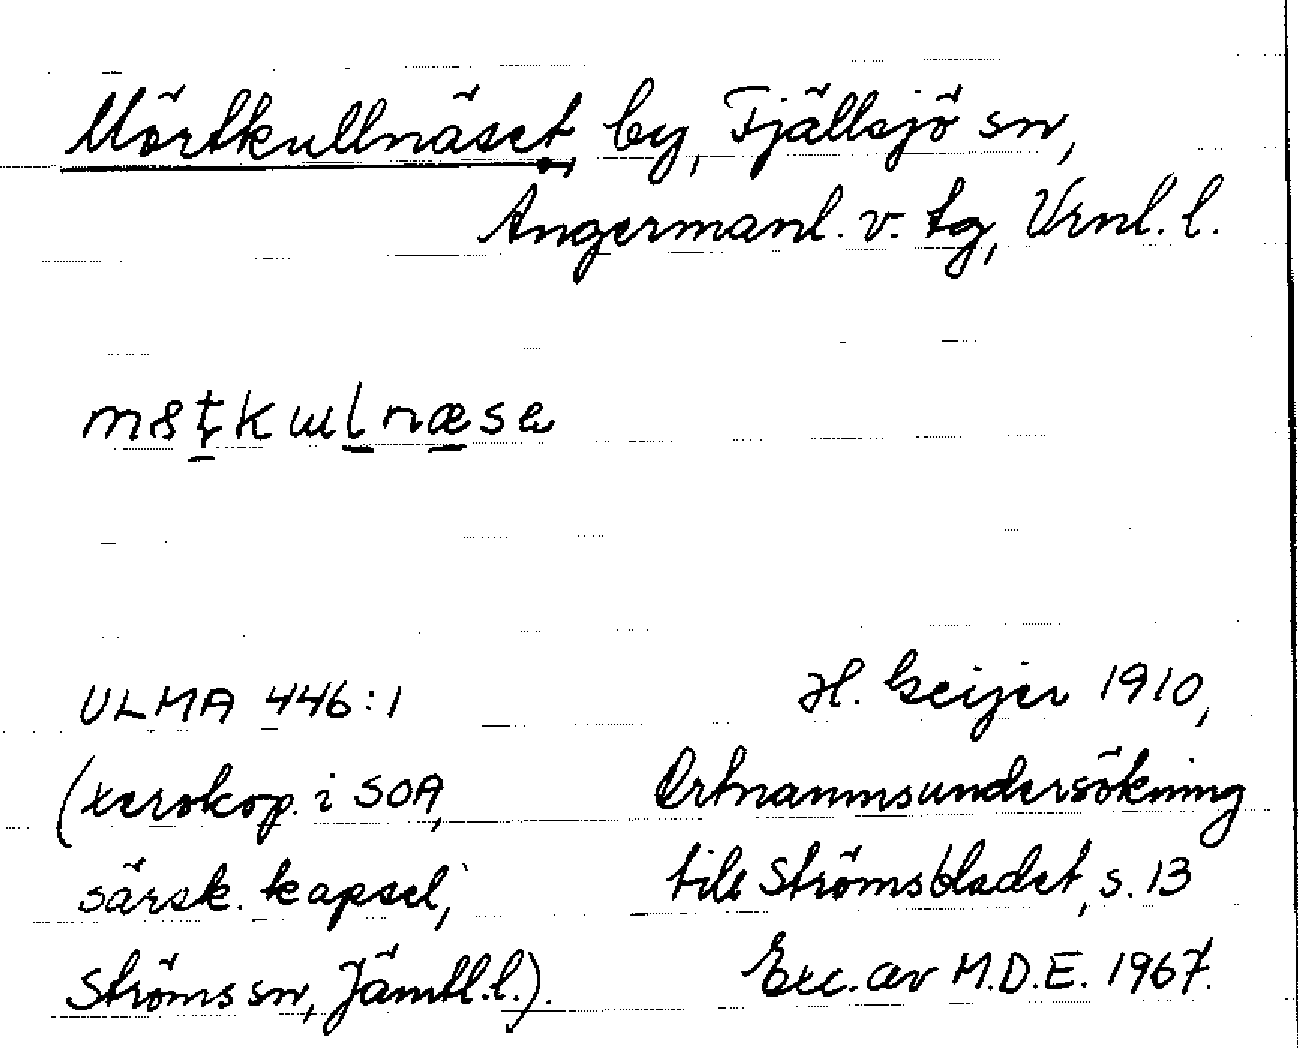 Mörtkullnäset by, Fjällsjö sn,
Ångermanl. v. tg, Vrnl. l.
ULMA 446:1
(xerokop. i SOA,
särsk. kapsel;
Ströms sn, Jämtl.l.).
H. Geijer 1910,
Ortnamnsundersökning
till Strömsbladet, s. 13
Exc. av M.D.E. 1967.